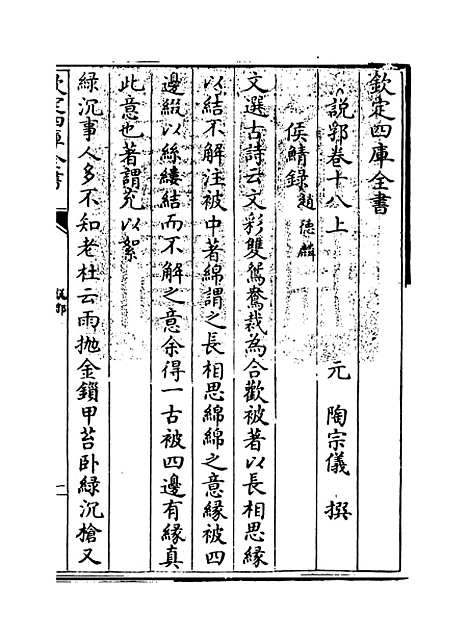 欽定四庫全書
說郛卷十八上
元 陶宗儀 撰
侯鯖録 趙德麟
文選古詩云文彩雙鴛鴦裁為合歡被著以長相思緣
以結不解注被中著綿謂之長相思綿綿之意緣被四
邊綴以絲縷結而不解之意余得一古被四邊有緣真
此意也著謂充以絮
緑沉事人多不知老杜云雨拋金鎖甲苔卧緑沉槍又
欽定四庫全書
說郛
一